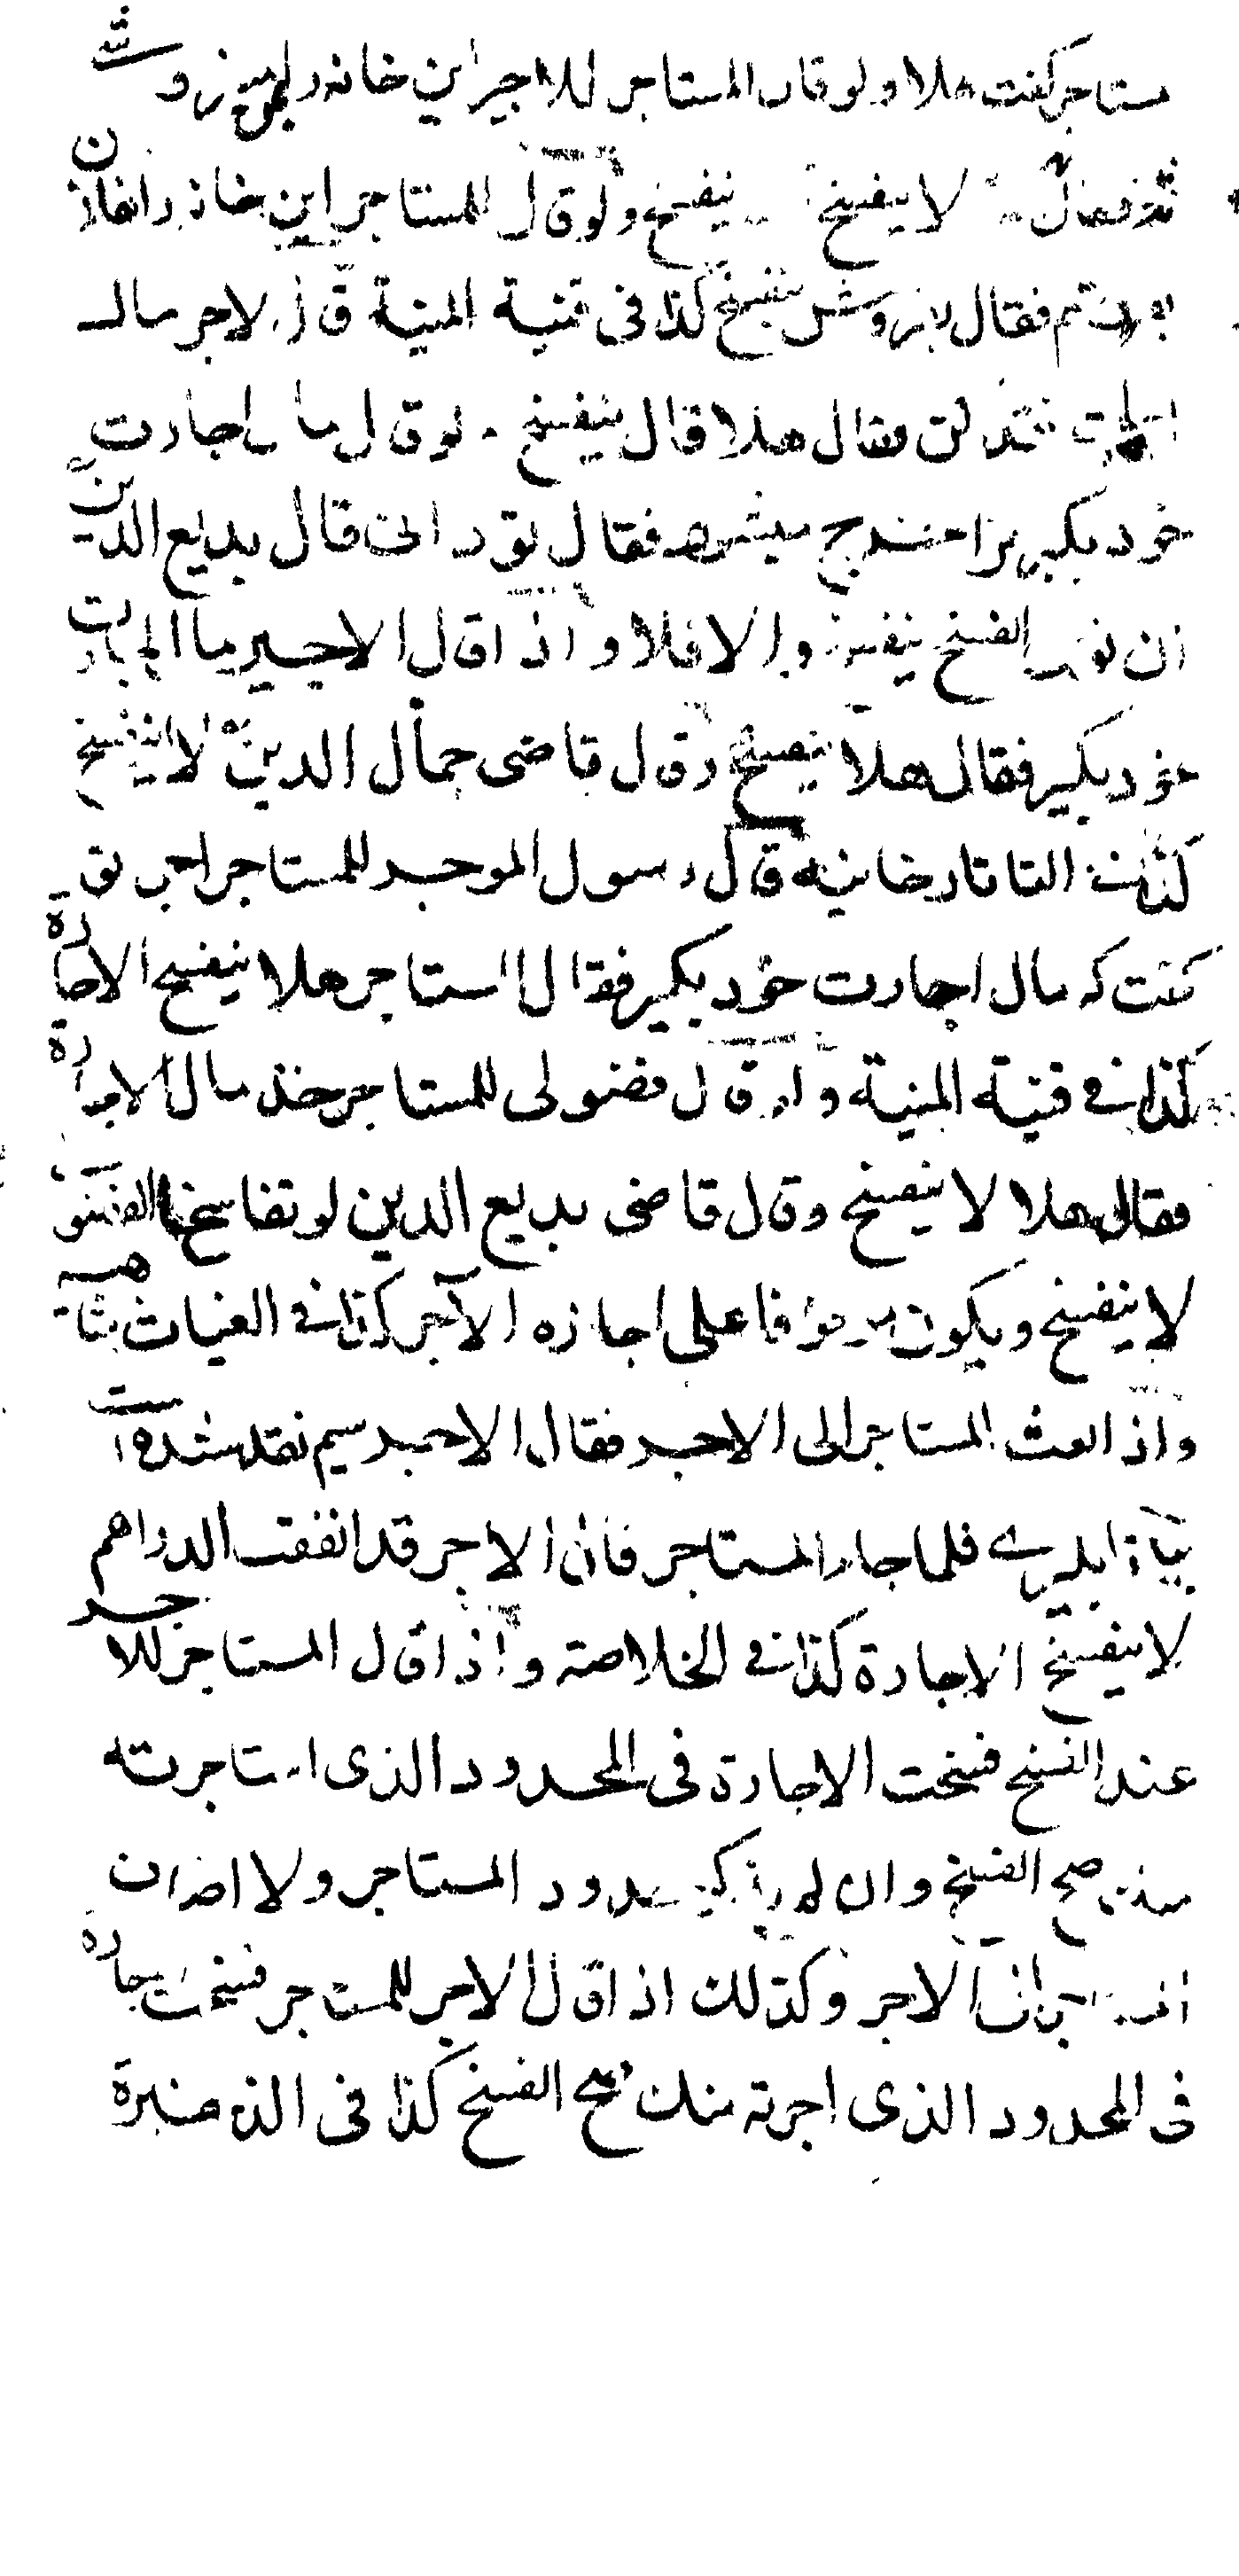 مستاجر كفت هلا ولو قال المستاجر للاجير اين خانه بمن فروش
فقال لا ينفسخ ينفسخ ولو قال للمستاجر اين خانه را بفلان
فقال بفروش ينفسخ كذا فى قنية المنية قال الاجر مال
اجارت نقد فقال هلا قال ينفسخ ولو قال مال اجارت
خود بكير فقال بديع الدين
ان نوى الفسخ ينفسخ والا فلا واذا قال الاجير مال اجارت
خود بكير فقال هلا ينفسخ وقال قاضى جمال الدين لا ينفسخ
كذا فى التاتارخانيه قال رسول الموجر للمستاجر
كفت كه مال اجارت خود بكير فقال المستاجر هلا ينفسخ الاجارة
كذا فى قنية المنية ولو قال فضولى للمستاجر خذ مال الاجارة
فقال هلا لا ينفسخ وقال قاضى بديع الدين لو تفاسخا الفضول
لا ينفسخ ويكون موقوفا على اجازه الآجر كذا فى الغياثيه
واذا بعث المستاجر الى الاجير فقال الاجير سيم نقد شده است
بيا تا ببرى فلما جاء المستاجر فان الاجر قد انفقت الدراهم
لا ينفسخ الاجارة كذا فى الخلاصة واذا قال المستاجر للاجر
عند الفسخ فسخت الاجارة فى المحدود الذى استاجرته
منك صح الفسخ وان لم يذكر حدود المستاجر ولا اضاف
الاجر وكذلك اذا قال الاجر للمستاجر فسخت اجارة
فى المحدود الذى اجرته منك صح الفسخ كذا فى الذخيرة